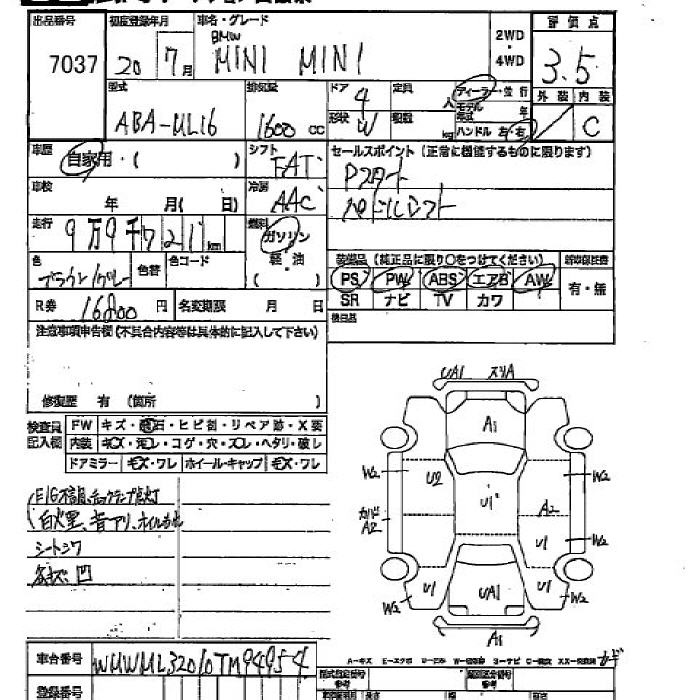 出品番号 初度登録年月 車名・グレード 評価点
7037 20 7月 BMW MINI MINI 2WD・4WD 3.5
型式 排気量 ドア 定員 ディーラー・並行 外装 内装
ABA-ML16 1600cc 4 人 モデル年式 年 C
形状 W 積載 kg ハンドル 左・右
車歴 自家用・( ) シフト FAT セールスポイント (正常に機能するものに限ります)
Pスタート
パドルシフト
車検 年 月( 日) 冷房 AAC
走行 9万9千721km 燃料 ガソリン・軽・油 ( )
色 ブラウン/グレー 色替 色コード
装備品 (純正品に限り○をつけてください) 新車保証書
PS PW ABS エアB AW 有・無
SR ナビ TV カワ
R券 16800円 名変期限 月 日
後日品
注意事項申告欄(不具合内容等は具体的に記入して下さい)
修復歴 有 (箇所 )
検査員記入欄 FW キズ・飛石・ヒビ割・リペア跡・X要
内装 キズ・汚レ・コゲ・穴・スレ・ヘタリ・破レ
ドアミラー キズ・ワレ ホイール・キャップ キズ・ワレ
E/G不調、チェックランプ点灯
白火里、音アリ、オイルもれ
シートシワ
各キズ、凹
UA1 スリA
A1
W2 U2 U1 W2
カバド A2 A2
U1 W2
W2 U1 UA1 U1 W2
A1
車台番号 WMWML32010TM94954
A-キズ E-エクボ U-凹み W-波 S-サビ C-腐食 XX-交換済
登録番号 型式指定番号 類別区分番号